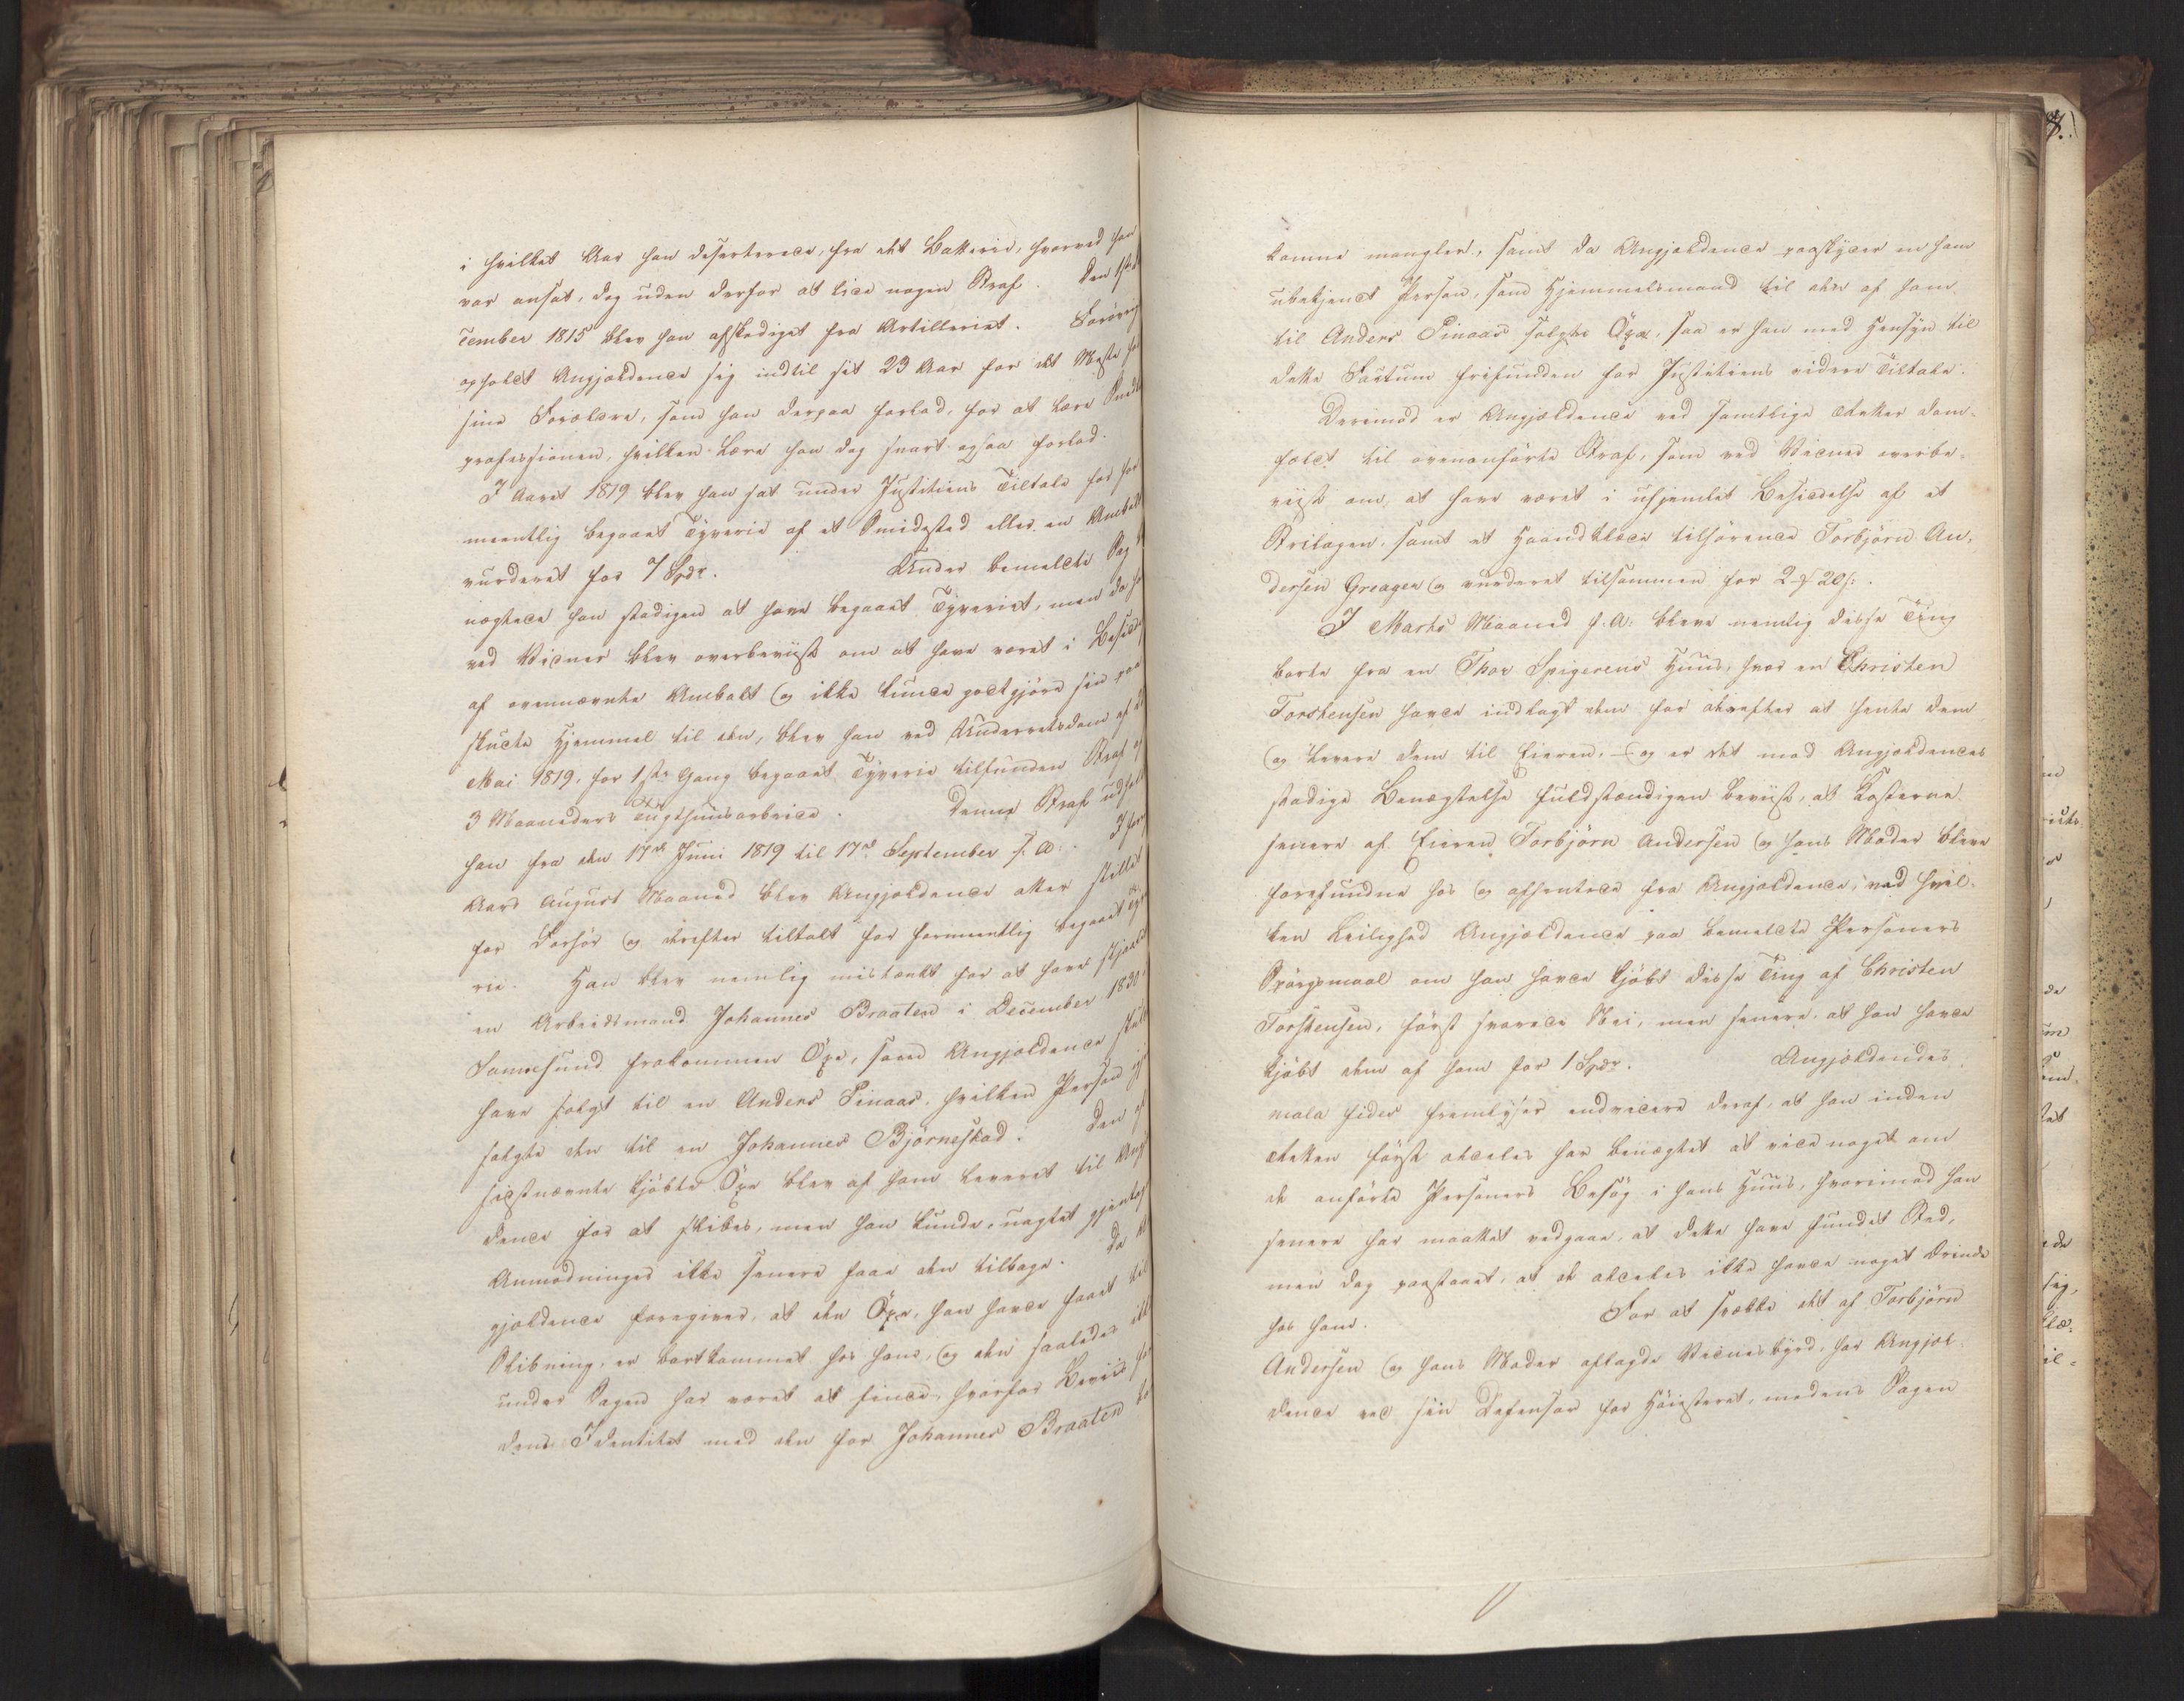 i hvilket Aar han deserterede fra det Batterie, hvorved han
var ansat, dog uden derfor at lide nogen Straf. Den 1ste
cember 1815 blev han afskediget fra Artilleriet. Forøvrig
opholdt Angjældende sig indtil sit 23 Aar for det Meste
sine Forældre, som han derpaa forlod, for at lære
professionen, hvilken Lære han dog snart ogsaa forlod.
I Aaret 1819 blev han sat under Justitiens Tiltale for for
meentlig begaaet Tyverie af et Smidested eller en Ambolt
vurderet for 7 Spdr. Under bemeldte Sag
nægtede han stadigen at have begaaet Tyveriet, men da
ved Vidner blev overbeviist om at have været i Besidd
af ovennævnte Ambolt og ikke kunde godtgjøre sin paa
skudte Hjemmel til den, blev han ved Underretsdom af
Mai 1819, for 1ste Gang begaaet Tyverie tilfunden Straf
3 Maaneders Tugthuusarbeide. Denne Straf udholdt
han fra den 17de Juni 1819 til 17de September s. A. I
Aars August Maaned blev Angjældende atter stillet
for Forhør og derefter tiltalt for formeentlig begaaet Tyve
rie. Han blev nemlig mistænkt for at have stjaalet
en Arbeidsmand Johannes Braaten i December 1830
frakommen Øxe, som Angjældende skal
have solgt til en Anders Pinaas, hvilken Person igjen
solgte den til en Johannes Bjørnestad. Den af
sidstnævnte kjøbte Øxe blev af ham leveret til Angjæl
dende for at skibes, men han kunde, uagtet gjentagne
Anmodninger ikke senere faae den tilbage. Da An
gjældende foregiver, at den Øxe, han havde faaet til
Skibning, er bortkommet hos ham, og den saaledes ikke
under Sagen har været at finde, hvorfor Beviis for
dens Identitet med den for Johannes Braaten
komne mangler, samt da Angjældende paaskyder en ham
ubekjendt Person, som Hjemmelsmand til den af ham
til Anders Pinaas solgte Øxe, saa er han med Hensyn til
dette Factum frifunden for Justitiens videre Tiltale.
Derimod er Angjældende ved samtlige Retter dom-
fældt til ovenanførte Straf, som ved Vidner overbe-
viist om, at have været i uhjemlet Besiddelse af et
Strilagen, samt et Haandklæde tilhørende Torbjørn An-
dersen Greager og vurderet tilsammen for 2 ƒ 20 ſ.
I Marts Maaned f. A. bleve nemlig disse Ting
borte fra en Thor Spigerens Huus, hvor en Christen
Torstensen havde indlagt dem for derefter at hente dem
og levere dem til Eieren, – og er det mod Angjældendes
stadige Benægtelse fuldstændigen beviist, at Kosterne
senere af Eieren Torbjørn Andersen og hans Moder bleve
forefundne hos og afhentede fra Angjældende, ved hvil-
ken Leilighed Angjældende paa bemeldte Personers
Spørgsmaal om han havde kjøbt disse Ting af Christen
Torstensen, først svarede Nei, men senere, at han havde
kjøbt dem af ham for 1 Spdr. Angjældendes
mala fides fremlyser endvidere deraf, at han inden
Retten først aldeles har benægtet at vide noget om
de anførte Personers Besøg i hans Huus, hvorimod han
senere har maattet vedgaae, at dette have fundet Sted,
men dog paastaaet, at de aldeles ikke havde noget Ærinde
hos ham. For at svække det af Torbjørn
Andersen og hans Moder aflagde Vidnesbyrd, har Angjæl-
dende ved sin Defensor for Høiesteret, medens Sagen